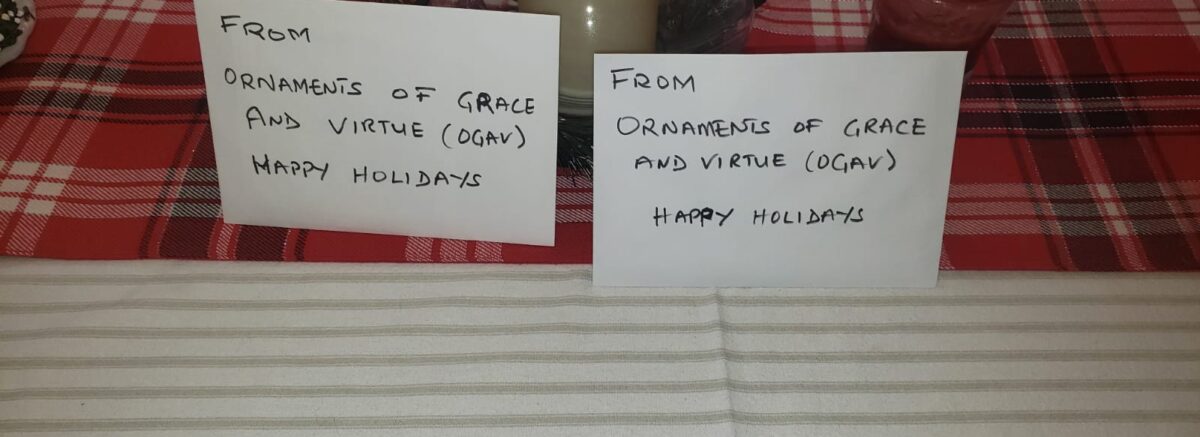 FROM
ORNAMENTS OF GRACE
AND VIRTUE (OGAV)
HAPPY HOLIDAYS
FROM
ORNAMENTS OF GRACE
AND VIRTUE (OGAV)
HAPPY HOLIDAYS